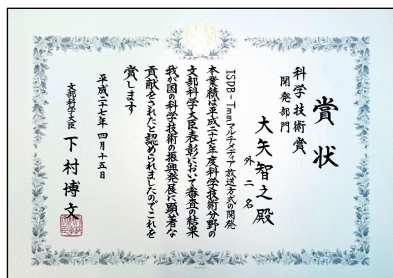 賞状
科学技術賞
開発部門
大矢智之殿
外二名
ISDB-Tmmマルチメディア放送方式の開発
本業績は平成二十七年度科学技術分野の
文部科学大臣表彰において審査の結果
我が国の科学技術の振興発展に顕著な
貢献をされたと認められましたのでこれを
賞します
平成二十七年四月十五日
文部科学大臣 下村博文